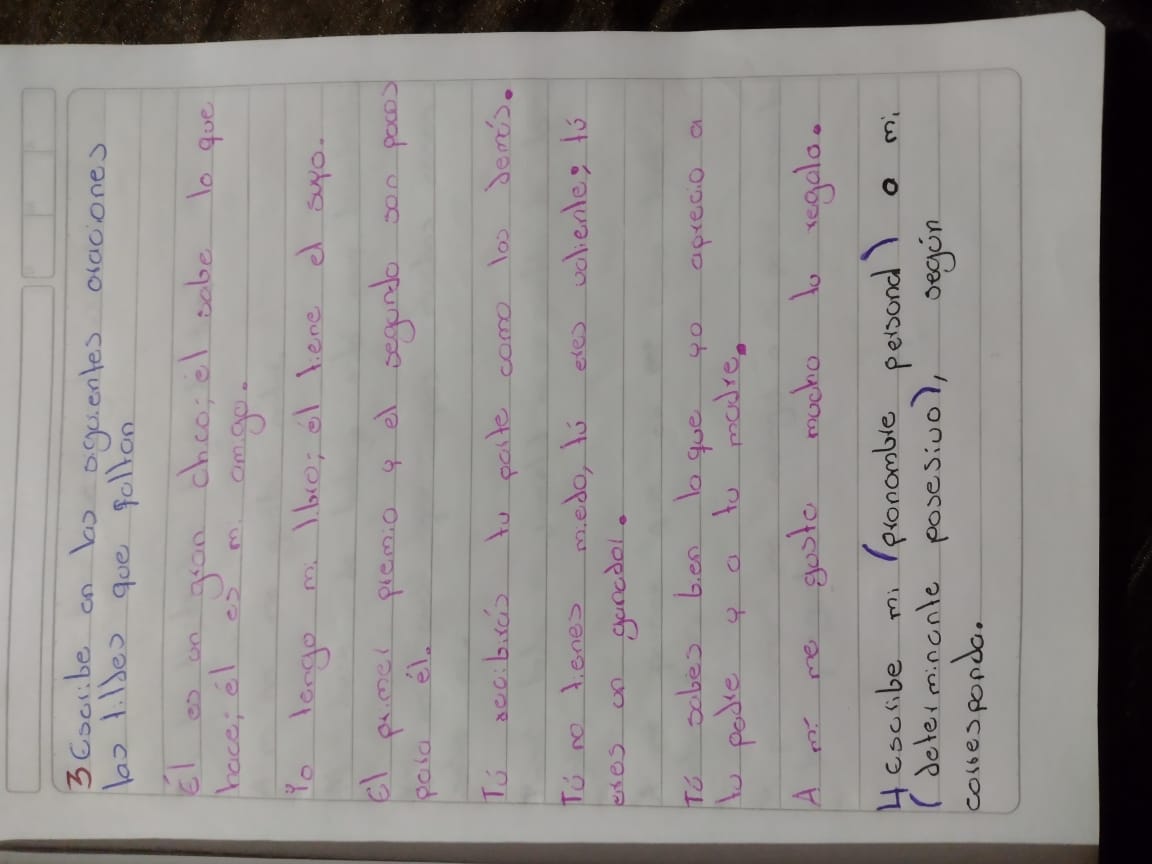 3 Escribe en las siguientes oraciones
las tildes que faltan
Él es un gran chico; él sabe lo que
hace; él es mi amigo.
Yo tengo mi libro; él tiene el suyo.
El primer premio y el segundo son pocos
para él.
Tú recibirás tu parte como los demás.
Tú no tienes miedo, tú eres valiente; tú
eres un ganador.
Tú sabes bien lo que yo aprecio a
tu padre y a tu madre.
A mí me gusta mucho tu regalo.
4 escribe mi (pronombre personal) o mi
(determinante posesivo), según
corresponda.